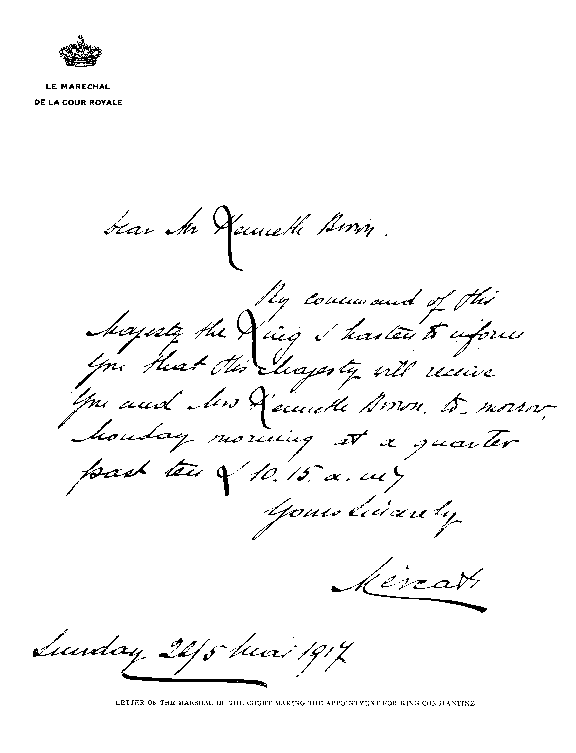 LE MARECHAL
DE LA COUR ROYALE
Dear Mr Kenneth Brown.
By command of His
Majesty the King I hasten to inform
You that His Majesty will receive
You and Mrs Kenneth Brown. to-morrow,
Monday morning at a quarter
past ten ( 10.15. a. m)
Yours Sincerely
Mercati
Sunday Mai 1917
LETTER OF THE MARSHAL OF THE COURT MAKING THE APPOINTMENT FOR KING CONSTANTINE